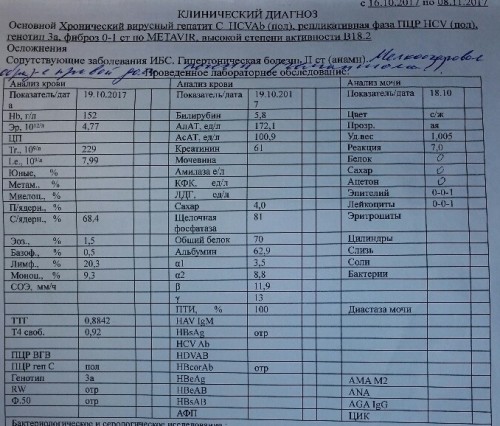 с 16.10.2017 по 08.11.2017
КЛИНИЧЕСКИЙ ДИАГНОЗ
Основной Хронический вирусный гепатит С, HCVAb (пол), репликативная фаза ПЦР HCV (пол),
генотип 3а, фиброз 0-1 ст по METAVIR, высокой степени активности В18.2
Осложнения
Сопутствующие заболевания ИБС. Гипертоническая болезнь II ст (анамн).
Проведенное лабораторное обследование:
Анализ крови Анализ крови Анализ мочи
Показатель/дата 19.10.2017 Показатель/дата 19.10.2017 Показатель/дата 18.10
Hb, г/л 152 Билирубин 5,8 Цвет с/ж
Эр, 10¹²/л 4,77 АлАТ, ед/л 172,1 Прозр. аа
ЦП АсАТ, ед/л 100,9 Уд.вес 1,005
Тr., 229 Креатинин 61 Реакция 7,0
7,99 Мочевина Белок 0
Юные, % Амилаза е/л Сахар 0
Метам., % КФК, ед/л Ацетон 0
Миелоц., % ЛДГ, ед/л Эпителий 0-0-1
П/ядерн., % Сахар 4,0 Лейкоциты 0-0-1
С/ядерн., % 68,4 Щелочная фосфатаза 81 Эритроциты
Эоз., % 1,5 Общий белок 70 Цилиндры
Базоф., % 0,5 Альбумин 62,9 Слизь
Лимф., % 20,3 α1 3,5 Соли
Моноц., % 9,3 α2 8,8 Бактерии
СОЭ, мм/ч β 11,9
γ 13
ПТИ, % 100 Диастаза мочи
ТТГ 0,8842 HAV IgM
Т4 своб. 0,92 HBsAg отр
HCV Ab
ПЦР ВГВ HDVAB
ПЦР геп С пол HBcorAb отр
Генотип 3а HBeAg AMA M2
RW отр HBeAB ANA
Ф.50 отр HBsAB AGA IgG
АФП ЦИК
Бактериологическое и серологическое исследование: